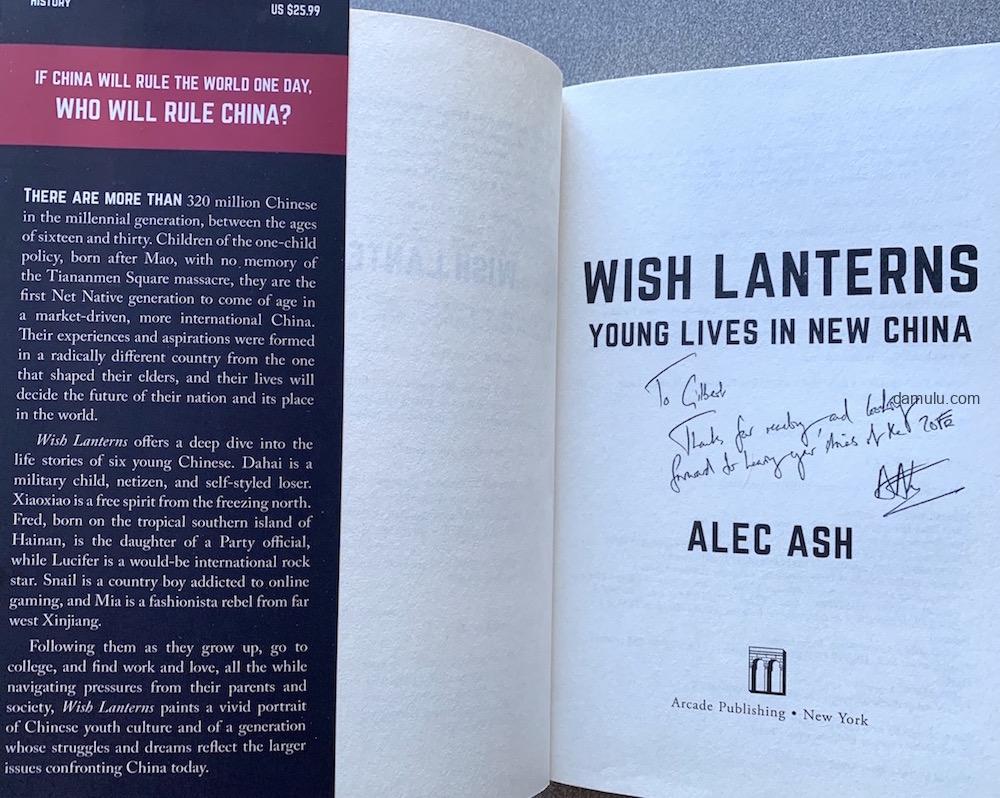 HISTORY
US $25.99
IF CHINA WILL RULE THE WORLD ONE DAY,
WHO WILL RULE CHINA?
THERE ARE MORE THAN 320 million Chinese
in the millennial generation, between the ages
of sixteen and thirty. Children of the one-child
policy, born after Mao, with no memory of
the Tiananmen Square massacre, they are the
first Net Native generation to come of age in
a market-driven, more international China.
Their experiences and aspirations were formed
in a radically different country from the one
that shaped their elders, and their lives will
decide the future of their nation and its place
in the world.
Wish Lanterns offers a deep dive into the
life stories of six young Chinese. Dahai is a
military child, netizen, and self-styled loser.
Xiaoxiao is a free spirit from the freezing north.
Fred, born on the tropical southern island of
Hainan, is the daughter of a Party official,
while Lucifer is a would-be international rock
star. Snail is a country boy addicted to online
gaming, and Mia is a fashionista rebel from far
west Xinjiang.
Following them as they grow up, go to
college, and find work and love, all the while
navigating pressures from their parents and
society, Wish Lanterns paints a vivid portrait
of Chinese youth culture and of a generation
whose struggles and dreams reflect the larger
issues confronting China today.
WISH LANTERNS
YOUNG LIVES IN NEW CHINA
To Gilbert
damulu.com
Thanks for reading and looking
forward to hearing your stories of the
ALEC ASH
Arcade Publishing • New York